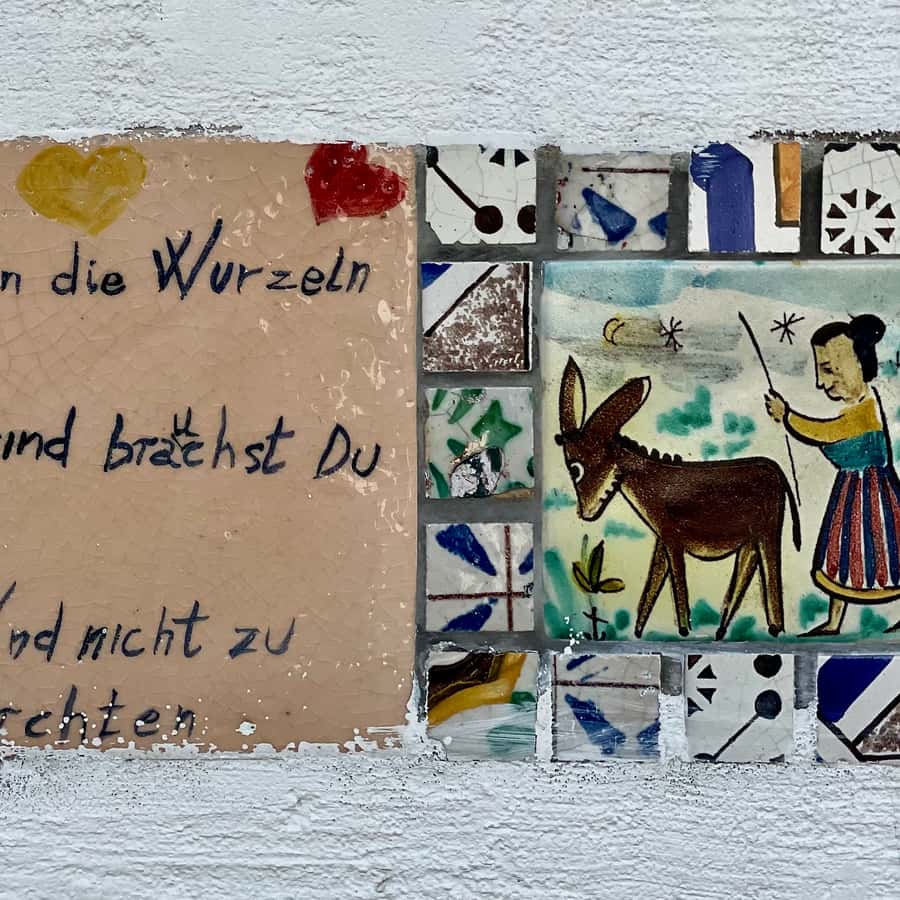 n die Wurzeln
ind braüchst Du
ind nicht zu
rchten